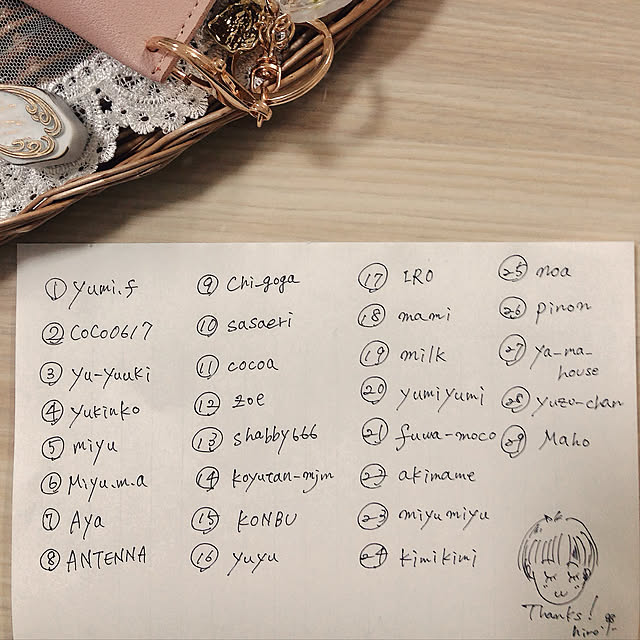 ① Yumi.f
② CoCo0617
③ yu-yuuki
④ yukinko
⑤ miyu
⑥ Miyu.m.a
⑦ Aya
⑧ ANTENNA
⑨ Chi_goga
⑩ sasaeri
⑪ cocoa
⑫ zoe
⑬ shabby666
⑭ koyutan-mjm
⑮ KONBU
⑯ yuyu
⑰ IRO
⑱ mami
⑲ milk
⑳ yumiyumi
㉑ fuwa-moco
㉒ akimame
㉓ miyumiyu
㉔ kimikimi
㉕ noa
㉖ pinon
㉗ ya-ma-
house
㉘ yuzu-chan
㉙ Maho
Thanks!